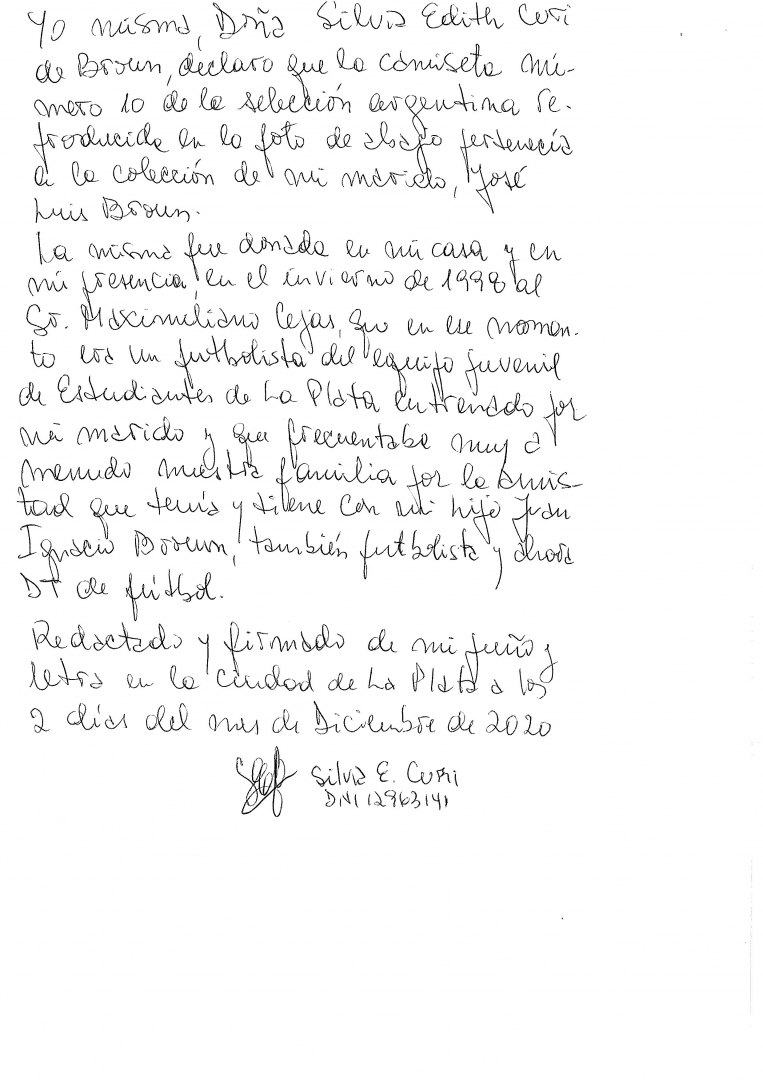 Yo misma, Doña Silvia Edith Curi
de Brown, declaro que la camiseta nú-
mero 10 de la selección argentina re-
producida en la foto de abajo pertenecía
a la colección de mi marido, José
Luis Brown.
La misma fue donada en mi casa y en
mi presencia, en el invierno de 1998 al
Sr. Maximiliano Cejas, que en ese momen-
to era un futbolista del equipo juvenil
de Estudiantes de La Plata entrenado por
mi marido y que frecuentaba muy a
menudo nuestra familia por la amis-
tad que tenía y tiene con mi hijo Juan
Ignacio Brown, también futbolista y ahora
DT de fútbol.
Redactado y firmado de mi puño y
letra en la ciudad de La Plata a los
2 días del mes de Diciembre de 2020
Silvia E. Curi
DNI 12963141